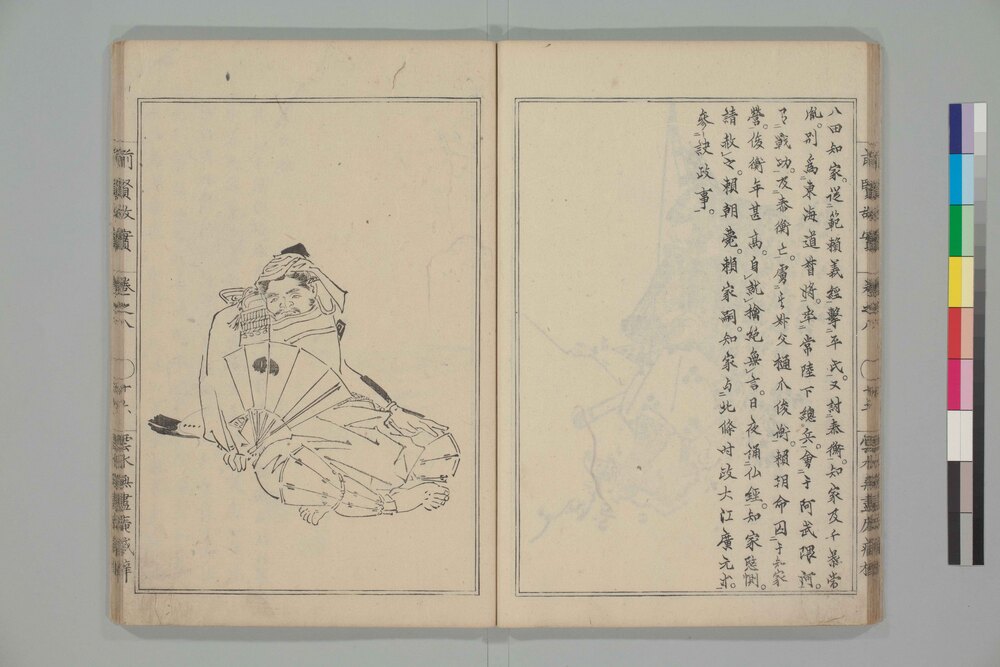 八田知家。從範賴義經擊平氏。又討泰衡。知家及千葉常
胤。別爲東海道督將。率常陸下總兵。會于阿武隈河。
有戰功。及泰衡亡。虜其外父樋爪俊衡。賴朝命囚于知家
營。俊衡年甚高。自就擒絕無言。日夜誦仏經。知家愍惻。
請赦之。賴朝薨。賴家嗣。知家与北條時政大江廣元等。
參決政事。
前賢故實
卷之八
雲水無盡庵藏梓
前賢故實
卷之八
雲水無盡庵藏梓